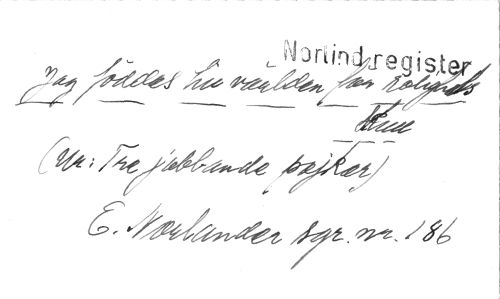 Norlind, register
Jag föddes hu världen för rolighets
skull
(Ur: Tre jobbande pojkar)
E. Norlander sgr. nr. 186